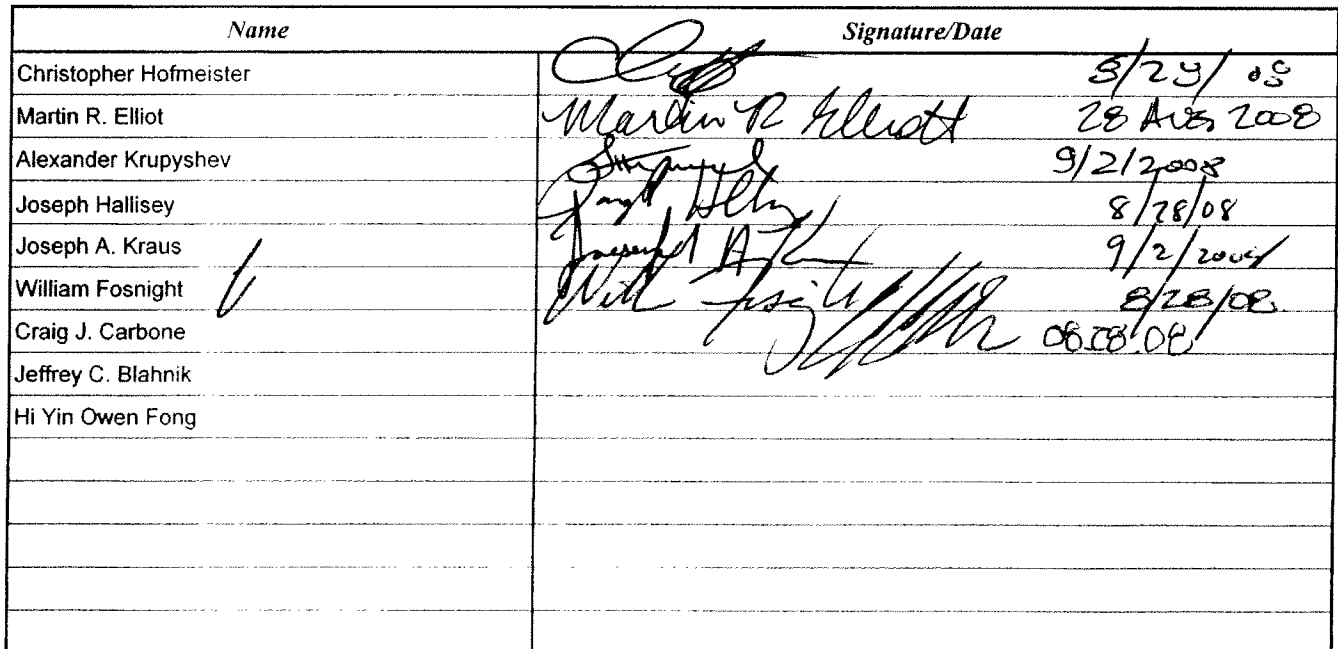 Name Signature/Date
Christopher Hofmeister
Martin R. Elliot Martin R Elliott 28 Aug 2008
Alexander Krupyshev 9/2/2008
Joseph Hallisey 8/28/08
Joseph A. Kraus Joseph A. Kraus 9/2/2008
William Fosnight Will Fosnight 8/28/08
Craig J. Carbone
Jeffrey C. Blahnik
Hi Yin Owen Fong